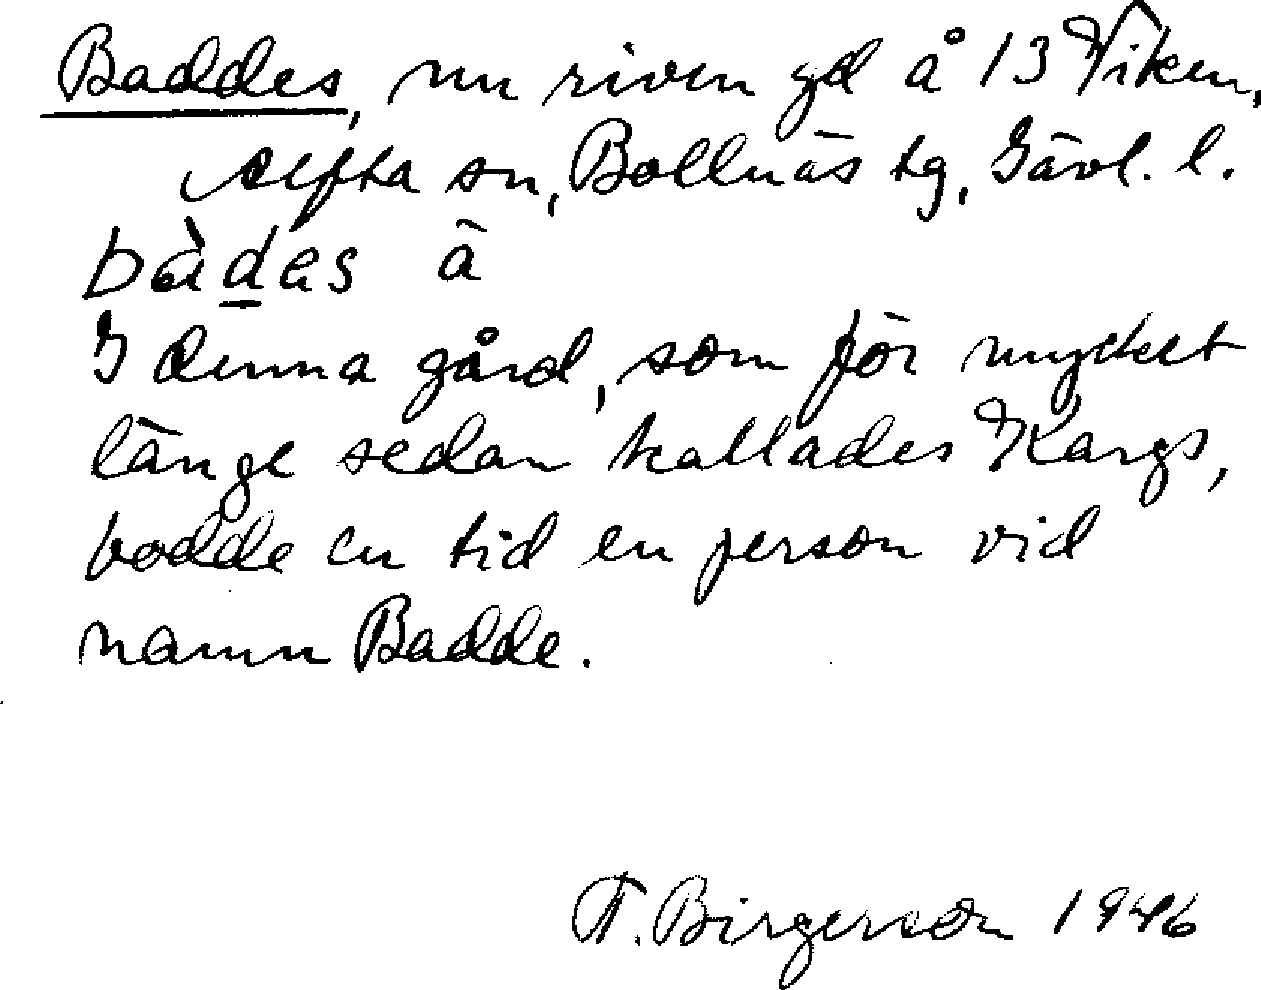 Baddes, nu riven gd å 13 Viken,
Alfta sn, Bollnäs tg, Gävl. l.
bàdas ā
I denna gård, som för mycket
länge sedan kallades Kargs,
bodde en tid en person vid
namn Badde.
F. Birgerson 1946